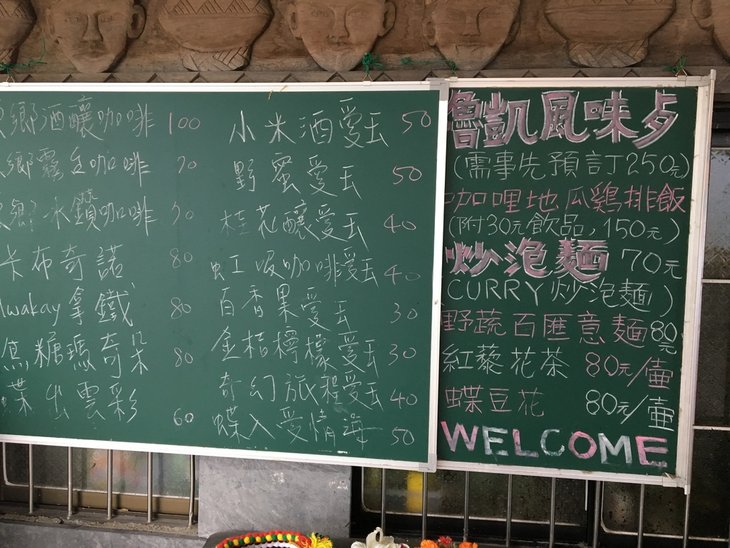 鄉酒釀咖啡 100
鄉露生咖啡 70
鄉冰鑽咖啡 70
卡布奇諾 80
lwakay拿鐵 80
焦糖瑪奇朵 80
蝶 雲彩 60
小米酒愛玉 50
野蜜愛玉 50
桂花釀愛玉 40
虹吸咖啡愛玉 40
百香果愛玉 30
金桔檸檬愛玉 30
奇幻旅程愛玉 40
蝶入愛情海 50
魯凱風味歺
(需事先預訂250元)
咖哩地瓜鷄排飯
(附30元飲品,150元)
炒泡麵 70元
CURRY炒泡麵)
野蔬百匯意麵80元
紅藜花茶 80元/壺
蝶豆花 80元/壺
WELCOME